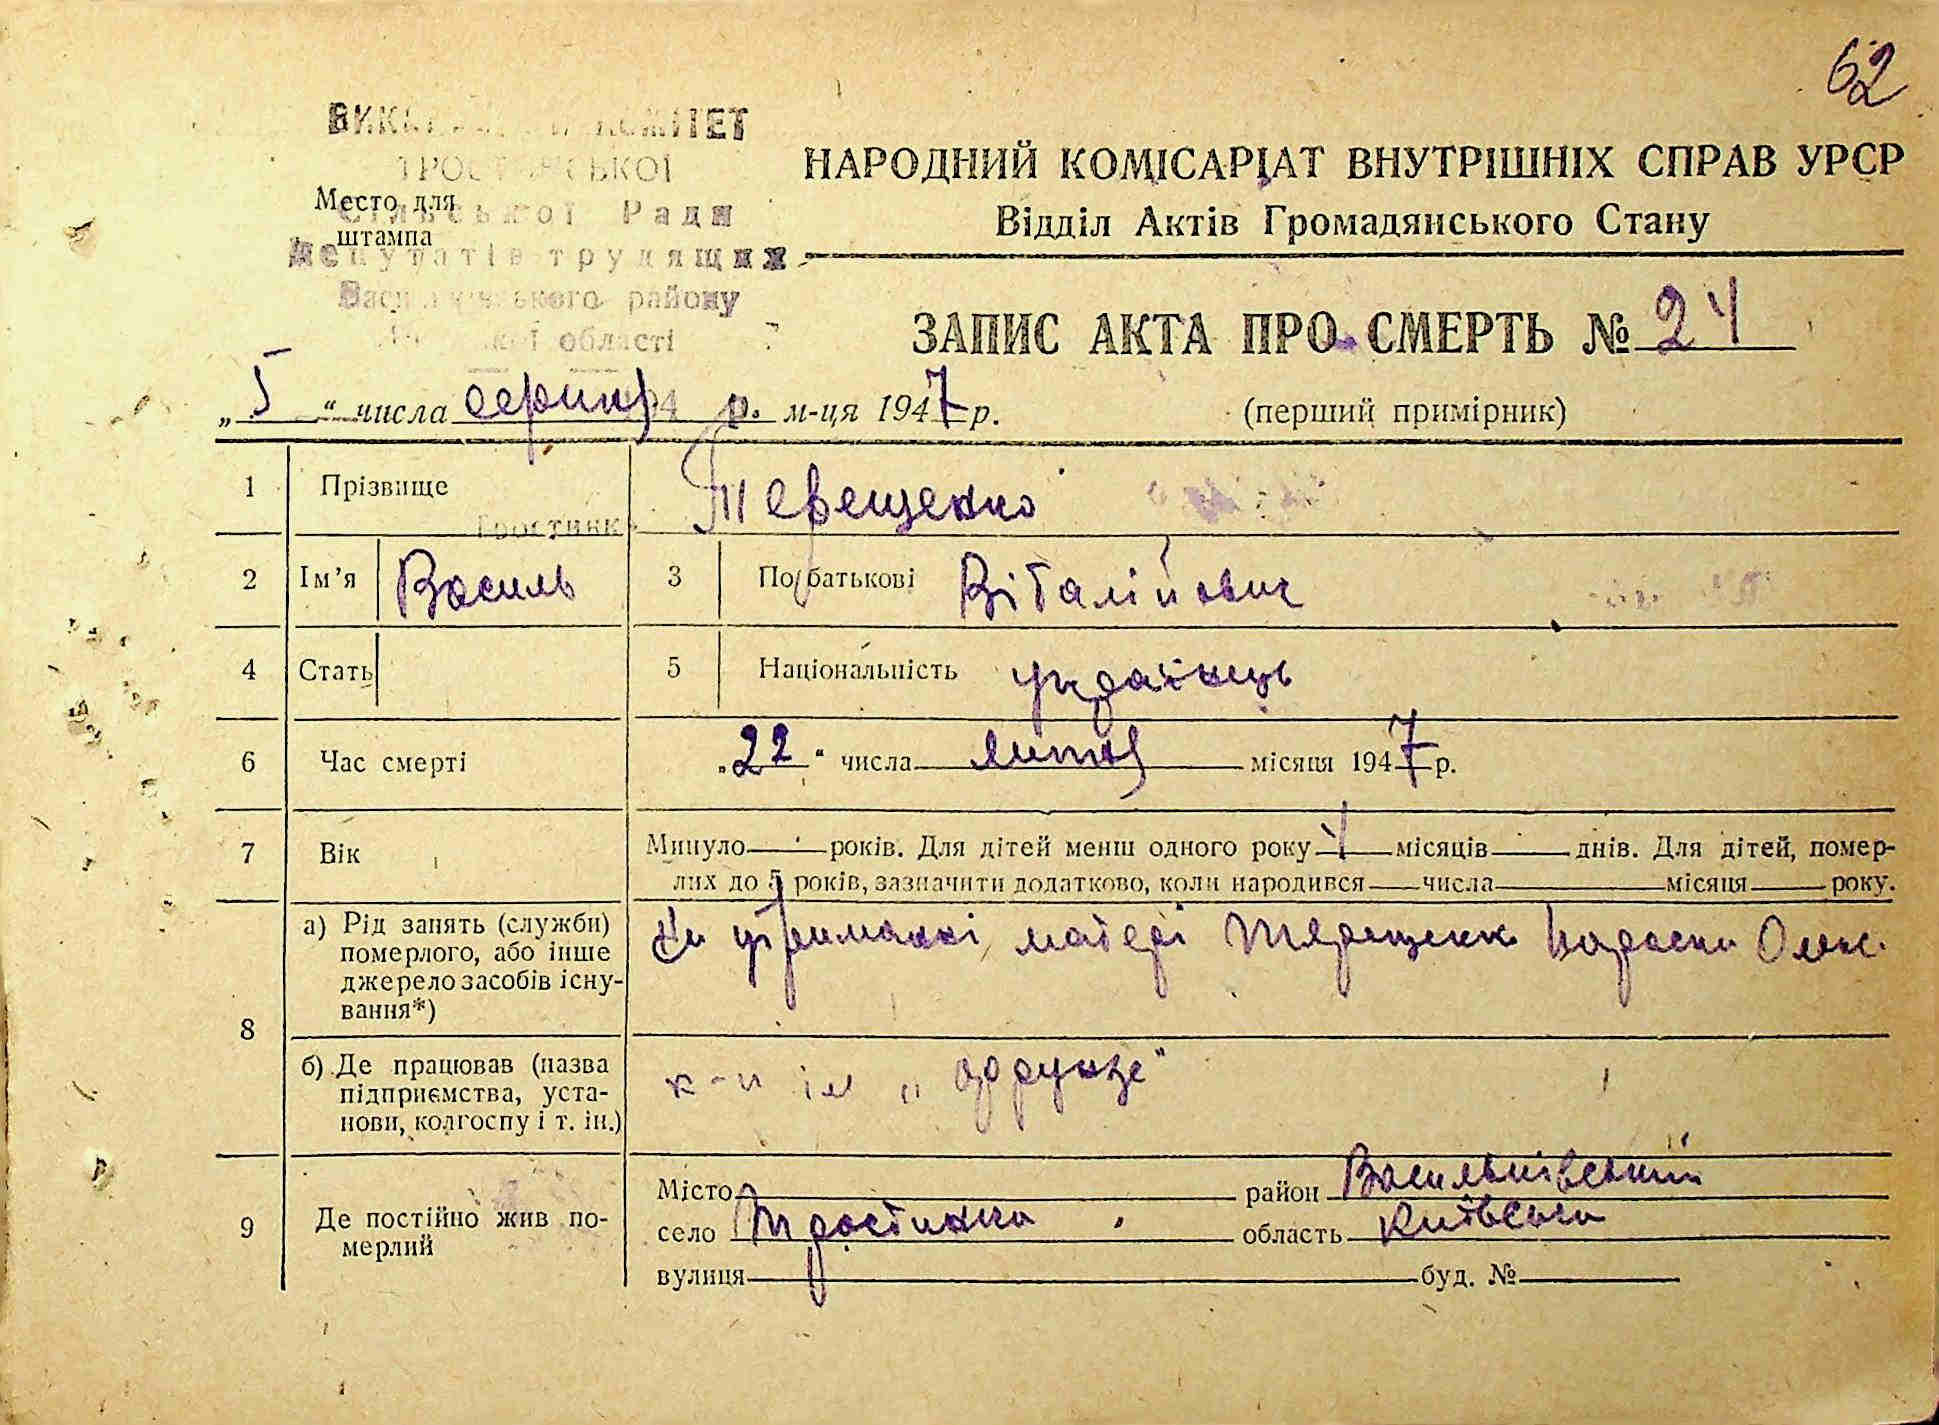 62
ВИКОНАВЧИЙ КОМІТЕТ
ТРОСТИНСЬКОЇ
Сільської Ради
депутатів трудящих
Васильківського району
Київської області
Место для
штампа
НАРОДНИЙ КОМІСАРІАТ ВНУТРІШНІХ СПРАВ УРСР
Відділ Актів Громадянського Стану
ЗАПИС АКТА ПРО СМЕРТЬ № 24
„5“ числа серпня м-ця 1947 р.
(перший примірник)
1 Прізвище Терещенко
2 Ім’я Василь 3 По батькові Віталійович
4 Стать 5 Національність українець
6 Час смерті „22“ числа лютня місяця 1947 р.
7 Вік Минуло років. Для дітей менш одного року 4 місяців днів. Для дітей, помер-
лих до 5 років, зазначити додатково, коли народився числа місяця року.
8 а) Рід занять (служби)
померлого, або інше
джерело засобів існу-
вання*)
На утриманні матері Терещенк Параски Олек.
б) Де працював (назва
підприємства, уста-
нови, колгоспу і т. ін.)
к-п ім „Фрунзе“
9 Де постійно жив по-
мерлий
Місто район Васильківський
село Тростинка область Київська
вулиця буд. №